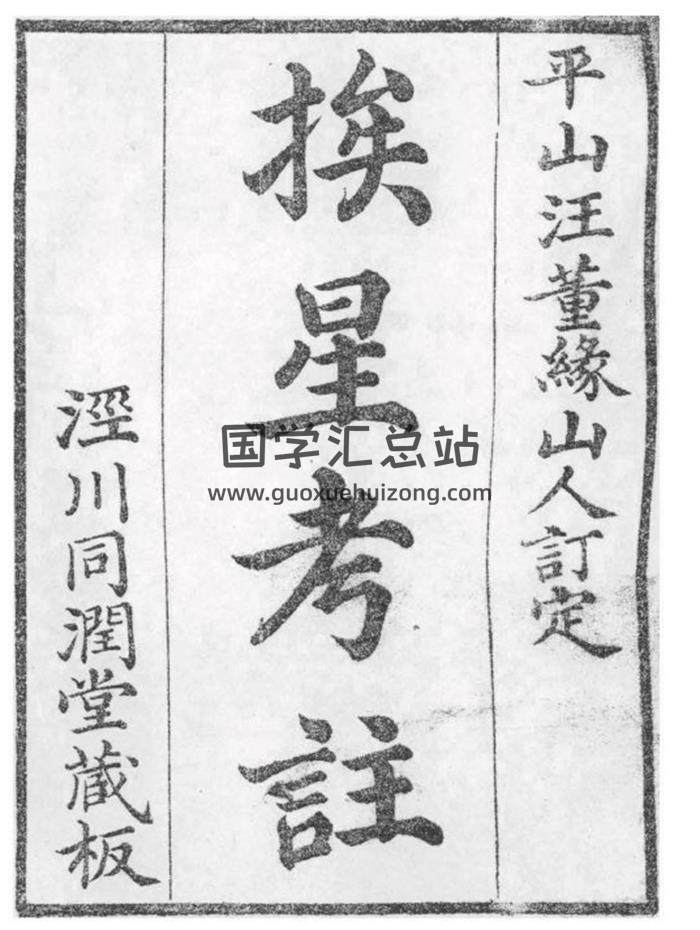 平山汪董緣山人訂定
挨星考註
涇川同潤堂藏板
国学汇总站
www.guoxuehuizong.com